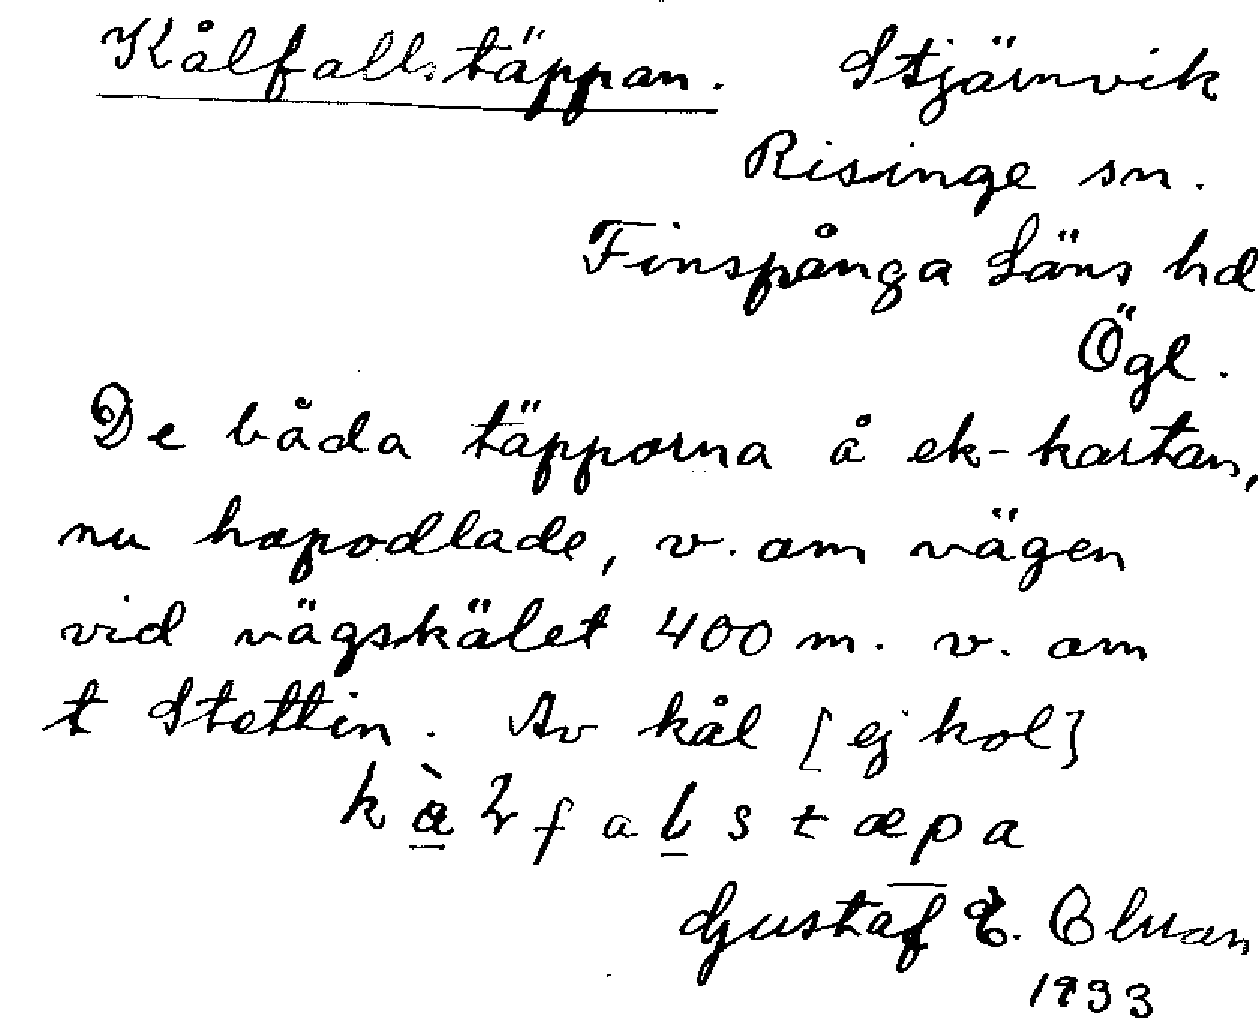 Kålfallstäppan. Stjärnvik
Risinge sn.
Finspånga Läns hd
Ögl.
De båda täpporna å ek-kartan,
nu hopodlade, v. om vägen
vid vägskälet 400 m. v. om
t Stettin. Av kål [ej kol]
Gustaf E.
1933